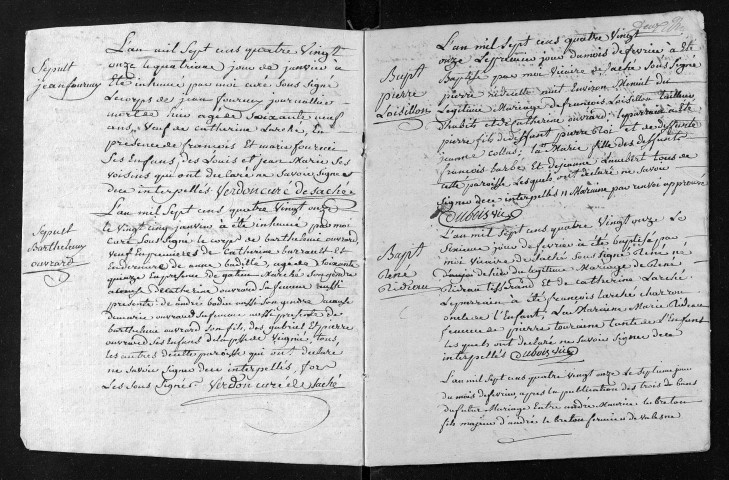 Sepult
jean fourny
L'an mil Sept cens quatre Vingt
onze le quatrieme jour de janvier à
Eté inhumé par moi curé sous Signé
Le corps de jean fourney journallier
mort de hier agé de Soixante neuf
ans, Veuf de Catherine Larché, En
presence de francois Et marie fournié
Ses Enfans, de Louis et jean Marie Ses
voisins qui ont declaré ne Savoir Signer
de ce interpellés Verdon curé de Saché
Sepult
Barthelemy
ouvrard
L'an mil Sept cens quatre Vingt onze
Le Vingt cinq janvier à été inhumé par moi
curé Sous Signé le corps de barthelemi ouvrard
Veuf En premieres de Catherine barrault et
En dernieres de anne agé de Soixante
quinze En presence de gatien Larché Son gendre
à cause de catherine ouvrard Sa femme aussi
presente: de andré bodin aussi Son gendre à cause
de marie ouvrard Sa femme aussi presente de
barthelemi ouvrard Son fils, des gabriel Et pierre
ouvrard Ses Enfans de la psse de Veigné, tous
les autres de cette paroisse qui ont declaré
ne Savoir Signer de ce interpellés, fors
Les Sous Signés Verdon curé de Saché
Bapt
pierre
Loisillon
L'an mil Sept cens quatre Vingt
onze Le premier jour du mois de fevrier à été
Baptisé par moi Vicaire de Saché Sous Signé
pierre né cette nuit Environ Minuit du
Legitime Mariage de francois Loisillon Tailleur
d'habits et de Catherine ouvrard; le parrain à été
pierre fils de deffunt pierre bloi et de deffunte
jeanne collas; la Mar. Marie fille des deffunts
francois barbé et de jeanne Lambert tous de
cette paroisse Lesquels ont déclaré ne savoir
signer de ce interpellés Maraine par renvoi approuvé
Dubois vic
Bapt
René
Rideau
L'an mil Sept cens quatre Vingt onze Le
Sixieme jour de fevrier à été baptisé par
moi Vicaire de Saché Sous Signé René né
d'aujourd'hui du légitime Mariage de René
Rideau tisserand Et de Catherine Larché
Le parrain à été francois Larché charron
oncle de l'Enfant, La Maraine Marie Rideau
femme de pierre tourne tante de l'Enfant
les quels ont déclaré ne Savoir Signer de ce
interpellés Dubois vic
L'an mil Sept cens quatre Vingt onze Le Septieme jour
du mois de fevrier, après la publication des trois bans
du futur Mariage Entre andré Maurice le breton
fils majeur d'andré le breton fermier de Valesne